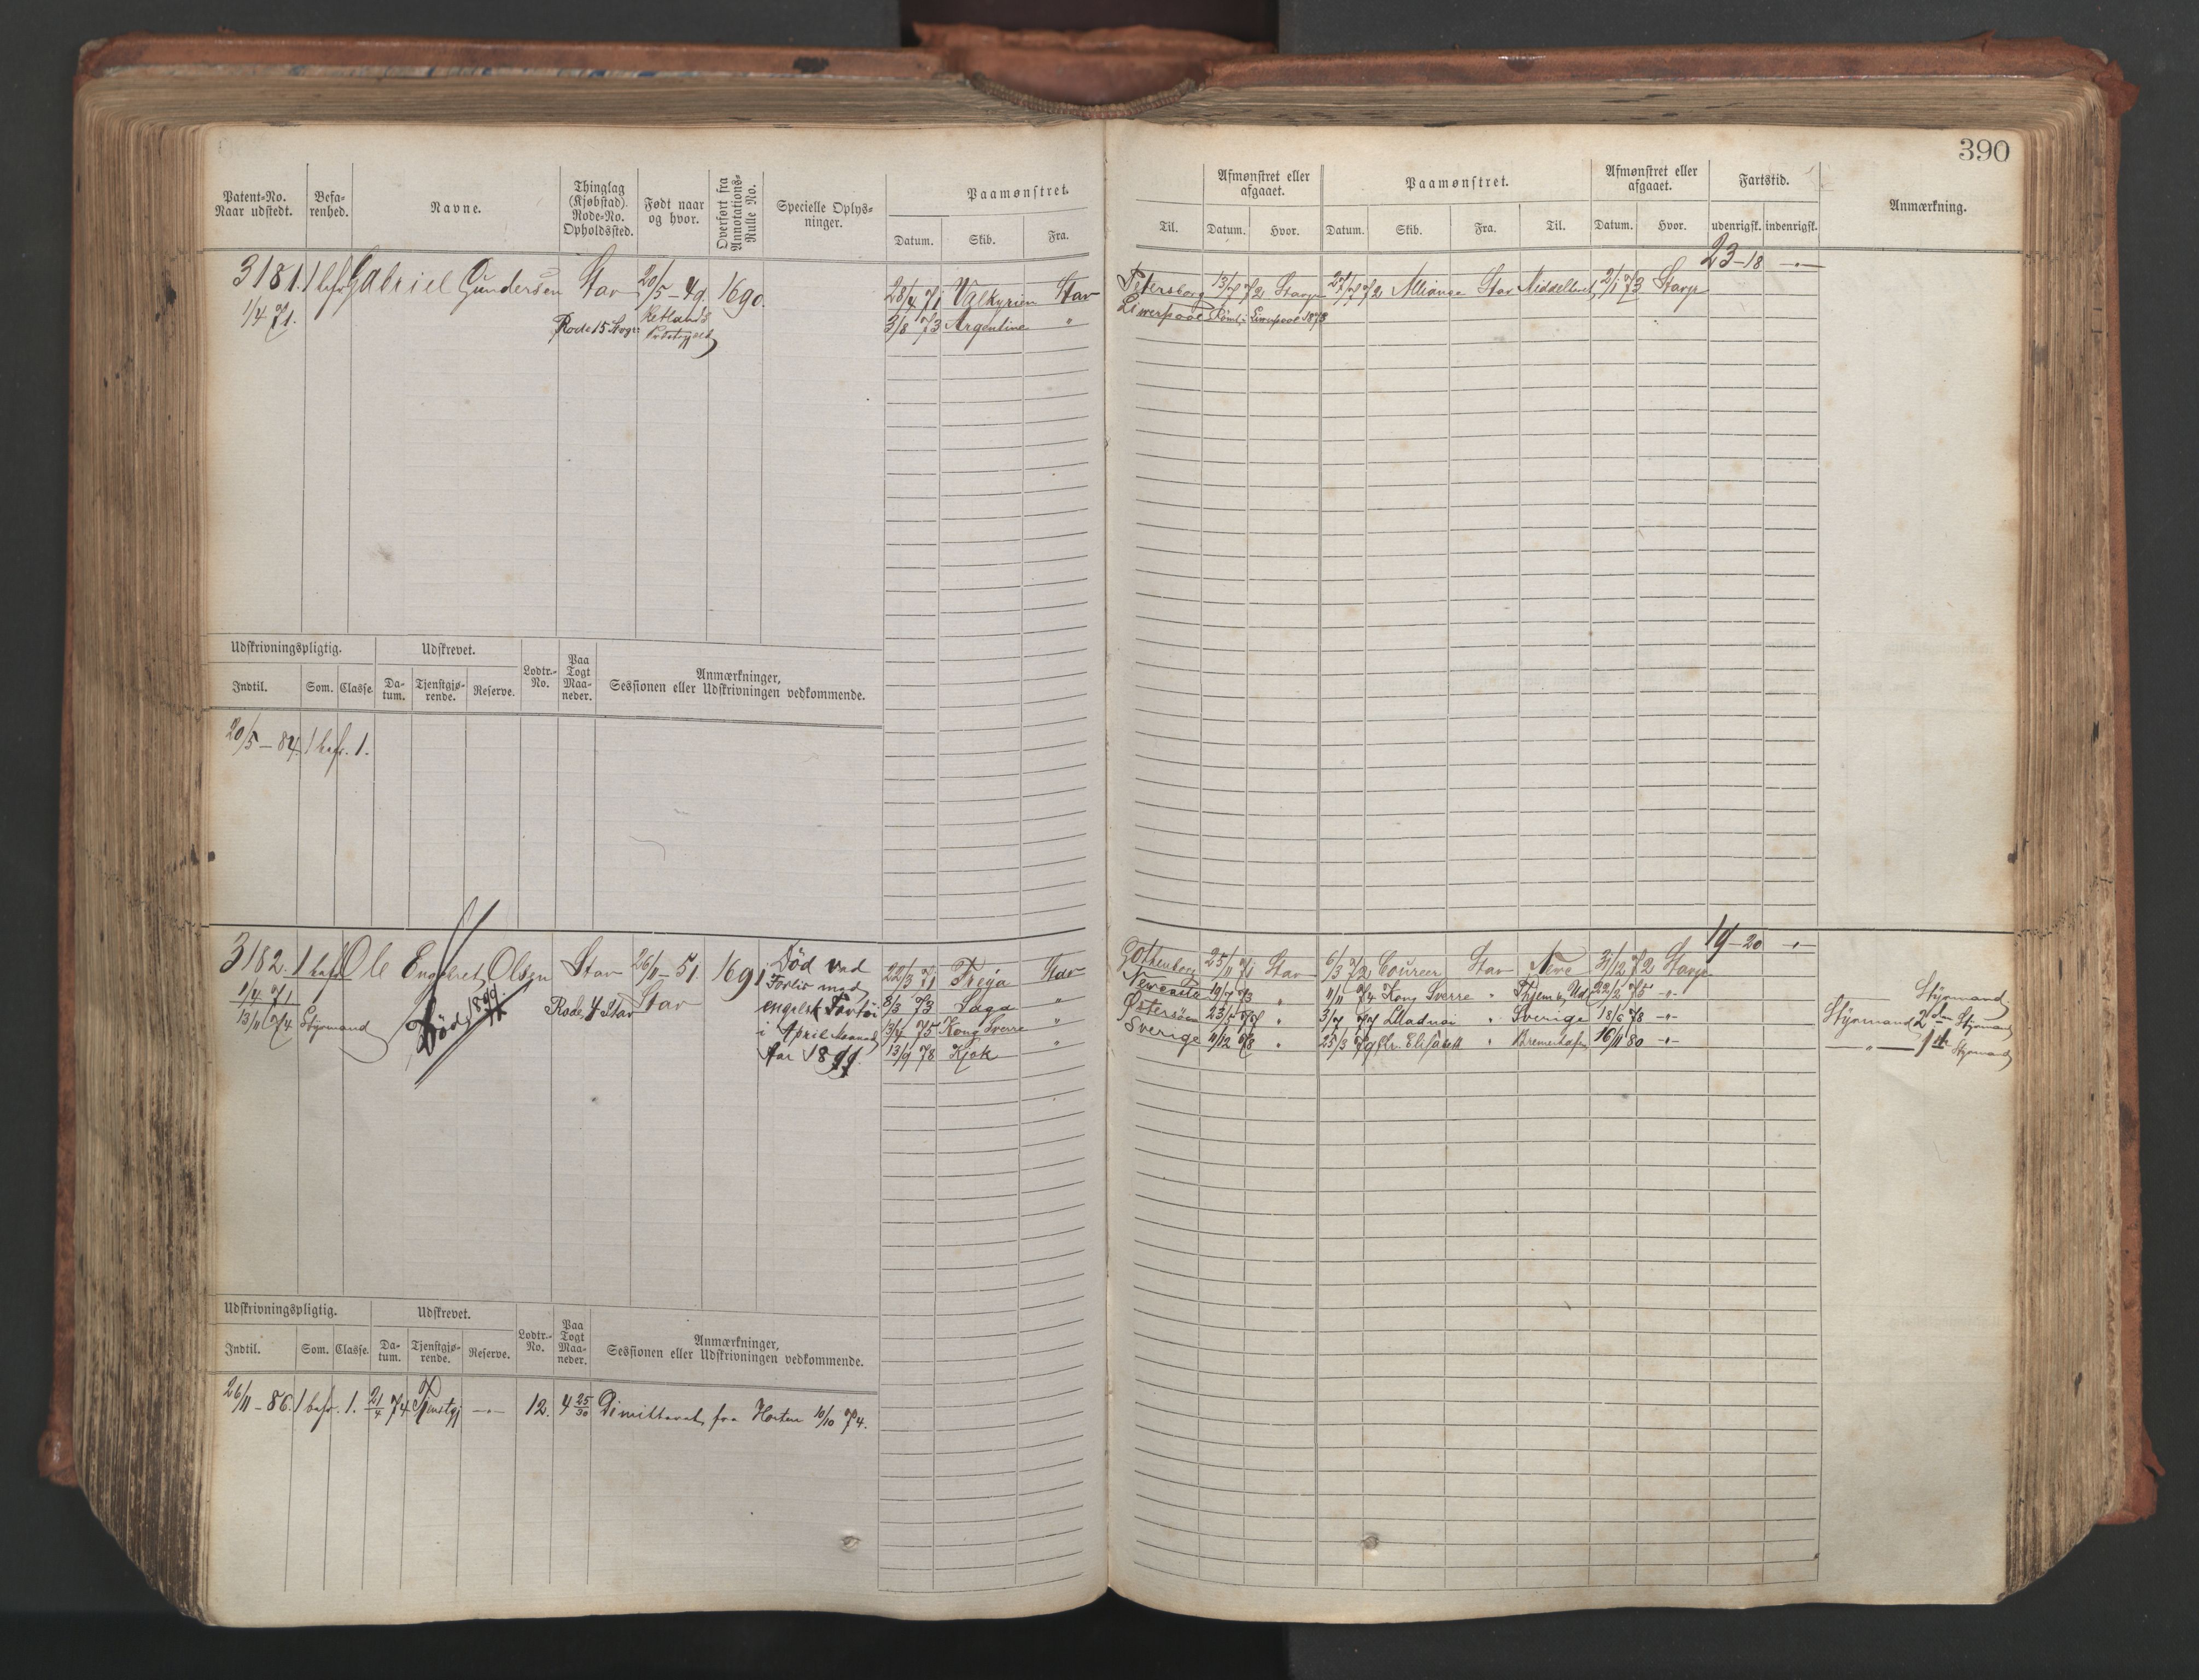 390
Patent-No. Naar udstedt.
Befa-renhed.
Navne.
Thinglag (Kjøbstad). Rode-No. Opholdssted.
Født naar og hvor.
Overført fra Annotations-Rulle No.
Specielle Oplys-ninger.
Paamønstret.
Datum. Skib. Fra.
Til.
Afmønstret eller afgaaet.
Datum. Hvor.
Paamønstret.
Datum. Skib. Fra. Til.
Afmønstret eller afgaaet.
Datum. Hvor.
Fartstid.
udenrigsk. indenrigsk.
Anmærkning.
23-18 -"-
3181. 1 bef. Gabriel Gundersen Stav 20/5-49. 1690. 28/4 71 Valkyrien Stav Petersborg 13/7 72 Stavgr 27/7 72 Alliance Stav Middelhvet 2/1 73 Stavgr
1/4 71. Rode 15 Stvgr 3/8 73 Argentine " Liverpool Rømt i Liverpool 1873
Udskrivningspligtig. Udskrevet. Lodtr.-No. Paa Togt Maa-neder. Anmærkninger, Sessionen eller Udskrivningen vedkommende.
Indtil. Som. Classe. Da-tum. Tjenstgjø-rende. Reserve.
20/5-84. 1 bef. 1.
19-20 -"-
3182. 1 bef. Ole Engebret Olsen Stav 26/11-51. 1691 Død ved 22/3 71 Freya Stav Gothenborg 25/11 71 Stav 6/3 72 Coureer Stav 31/12 72 Stavgr
1/4 71 Stav Forlis med 8/3 73 Saga " 19/7 73 " 11/11 74 Kong Sverre " 22/2 75 -"- Styrmand
13/11 74 Styrmand Død 1899 Rode 4 Stav engelsk Fartøi 13/4 75 Kong Sverre " Østersøen 23/5 77 " 3/7 77 " Sverige 18/6 78 -"- Styrmand 2den Styrmand
i April maaned 13/9 78 Kjæk " Sverige 11/12 78 " 25/3 79 Elisabeth " Bremerhafn 16/11 80 -"- -"- 1ste Styrmand
Aar 1899.
Udskrivningspligtig. Udskrevet. Lodtr.-No. Paa Togt Maa-neder. Anmærkninger, Sessionen eller Udskrivningen vedkommende.
Indtil. Som. Classe. Da-tum. Tjenstgjø-rende. Reserve.
26/11-86. 1 bef. 1. 21/4 74 Tjenstgj -"- 12. 4 25/30 Dimitteret fra Horten 10/10 74.